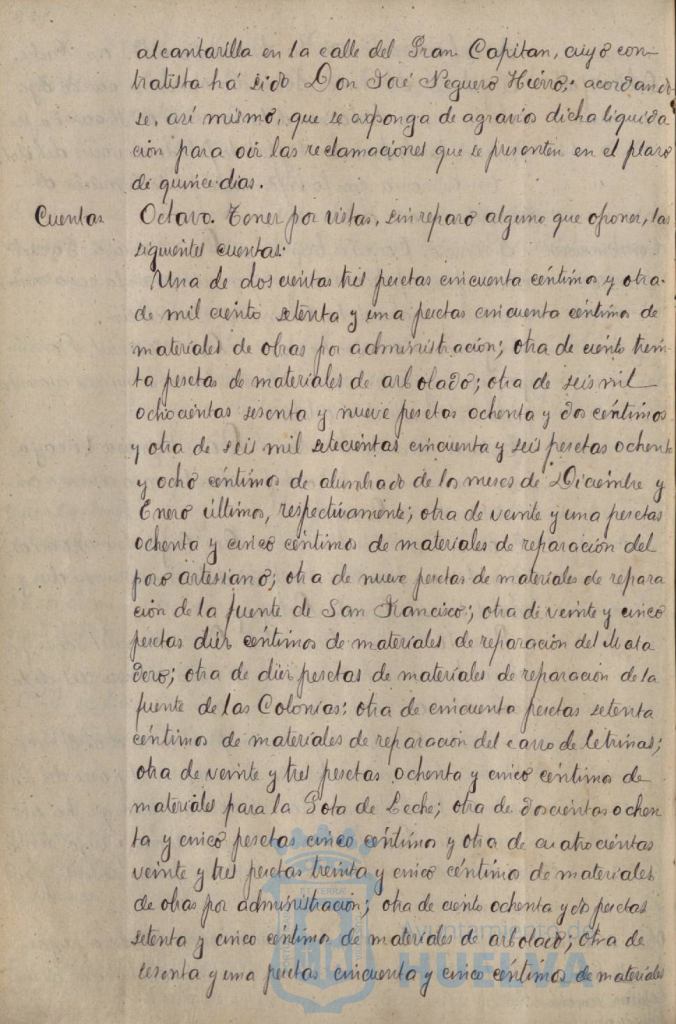 alcantarilla en la calle del Gran Capitan, cuyo con-
tratista há sido Don José Peguero Hierro; acordando
se, así mismo, que se exponga de agravios dicha liquida
ción para oir las reclamaciones que se presenten en el plazo
de quince dias.
Cuentas Octavo. Tener por vistas, sin reparo alguno que oponer, las
siguientes cuentas:
Una de doscientas tres pesetas cincuenta céntimos y otra
de mil ciento setenta y una pesetas cincuenta céntimos de
materiales de obras por administración; otra de ciento trein-
ta pesetas de materiales de arbolado; otra de seis mil
ochocientas sesenta y nueve pesetas ochenta y dos céntimos
y otra de seis mil setecientas cincuenta y seis pesetas ochenta
y ocho céntimos de alumbrado de los meses de Diciembre y
Enero últimos, respectivamente; otra de veinte y una pesetas
ochenta y cinco céntimos de materiales de reparación del
pozo artesiano; otra de nueve pesetas de materiales de repara
ción de la fuente de San Francisco; otra de veinte y cinco
pesetas diez céntimos de materiales de reparación del Mata
dero; otra de diez pesetas de materiales de reparación de la
fuente de las Colonias; otra de cincuenta pesetas setenta
céntimos de materiales de reparación del carro de letrinas;
otra de veinte y tres pesetas ochenta y cinco céntimos de
materiales para la Gota de Leche; otra de doscientas ochen
ta y cinco pesetas cinco céntimos y otra de cuatrocientas
veinte y tres pesetas treinta y cinco céntimos de materiales
de obras por administración; otra de ciento ochenta y dos pesetas
setenta y cinco céntimos de materiales de arbolado; otra de
sesenta y una pesetas cincuenta y cinco céntimos de materiales
Ayuntamiento de
HUELVA